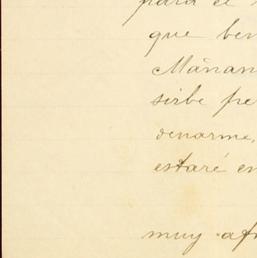 para el
que ben
Mañan
sirbe pre
denarme,
estaré en
muy af